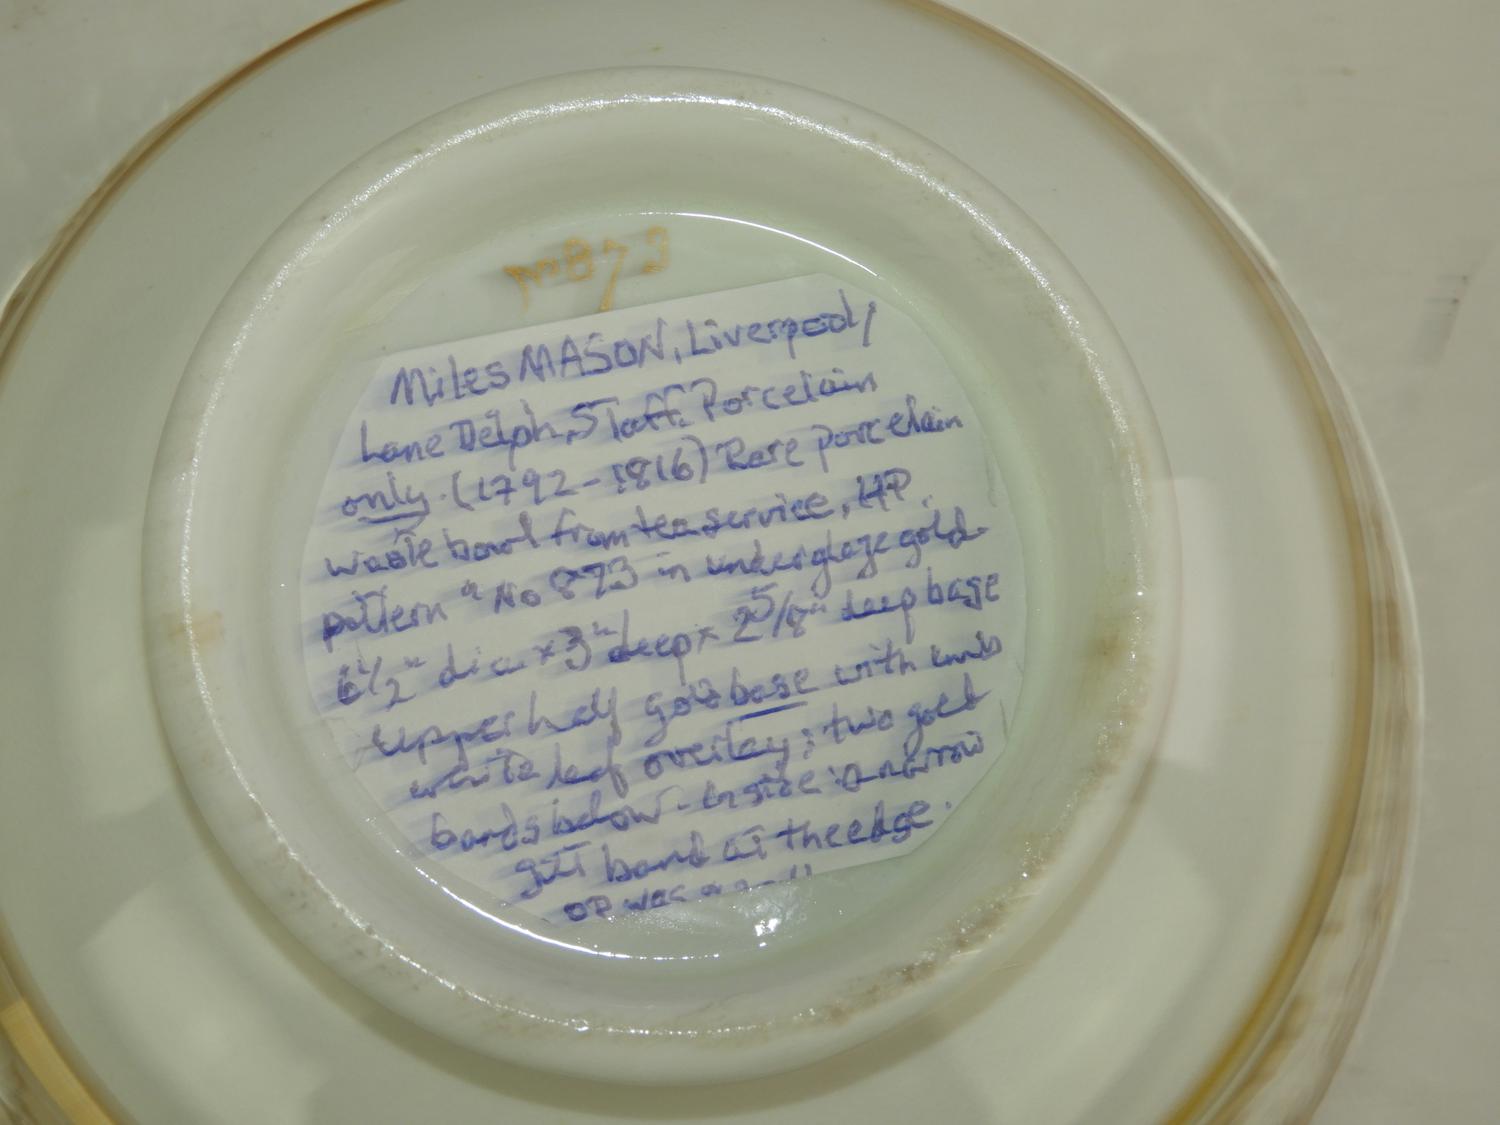 No 873
Miles MASON, Liverpool/
Lane Delph, Staff. Porcelain
only. (1792-1816) Rare porcelain
waste bowl from tea service, HP.
pattern "No 873 in underglaze gold-
6½" dia × 3" deep × 2 5/8" deep base
upper half gold base with
white leaf overlay; two gold
bands below - inside narrow
gilt band at the edge.